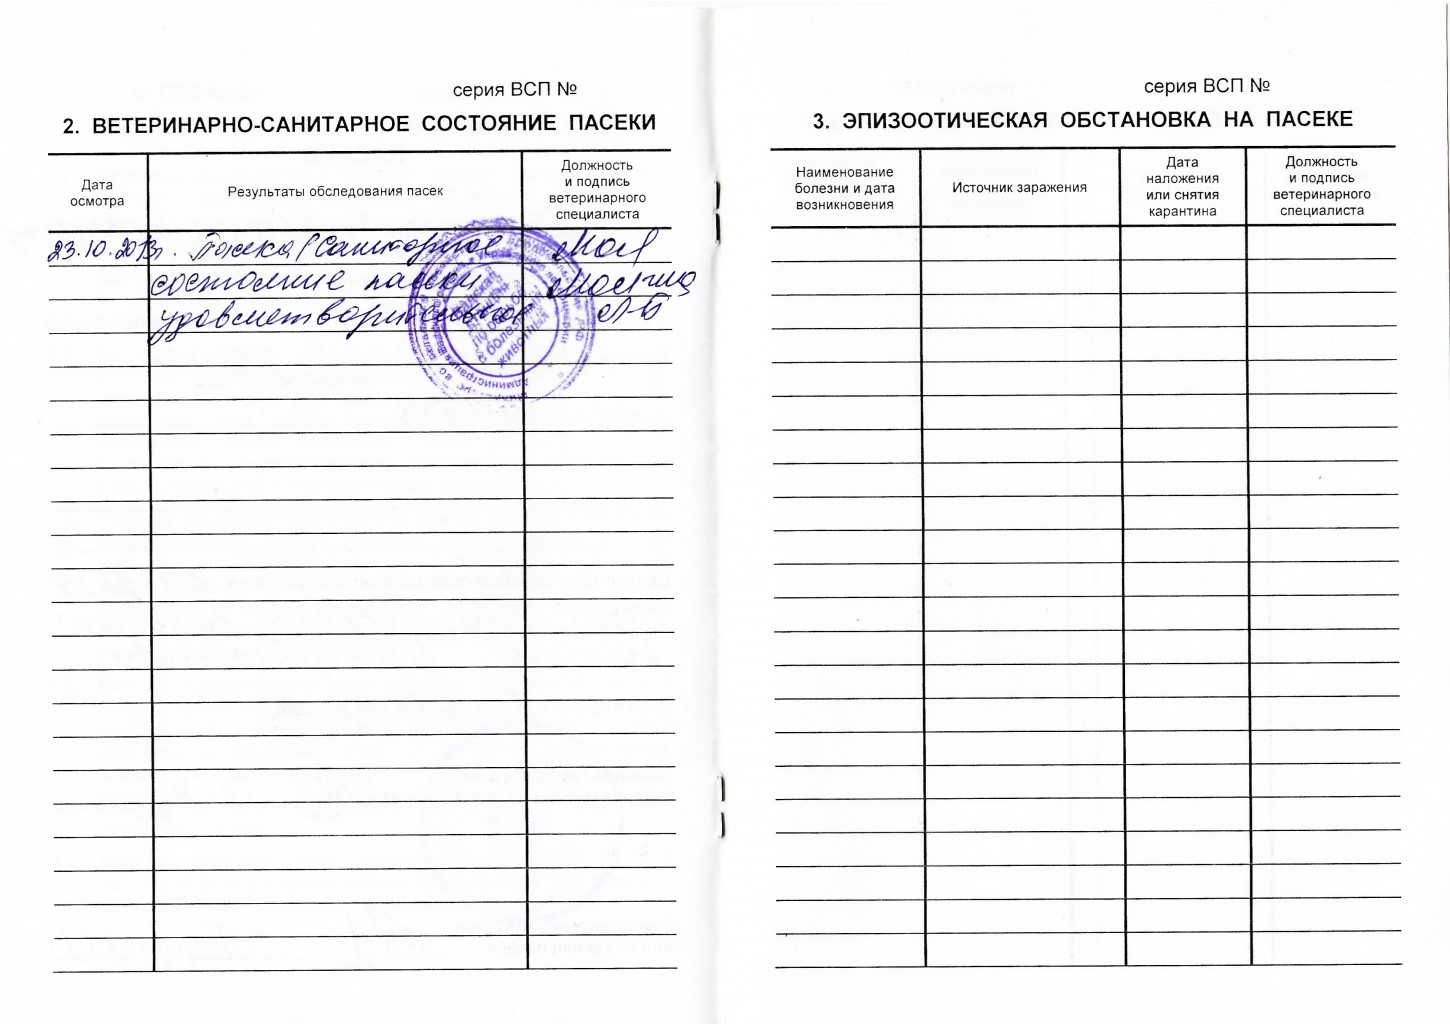 серия ВСП №
2. ВЕТЕРИНАРНО-САНИТАРНОЕ СОСТОЯНИЕ ПАСЕКИ
Дата
осмотра
Результаты обследования пасек
Должность
и подпись
ветеринарного
специалиста
23.10.2013г. Пасека Санитарное
состояние пасеки
удовлетворительное
по борьбе
с болезнями
животных
серия ВСП №
3. ЭПИЗООТИЧЕСКАЯ ОБСТАНОВКА НА ПАСЕКЕ
Наименование
болезни и дата
возникновения
Источник заражения
Дата
наложения
или снятия
карантина
Должность
и подпись
ветеринарного
специалиста